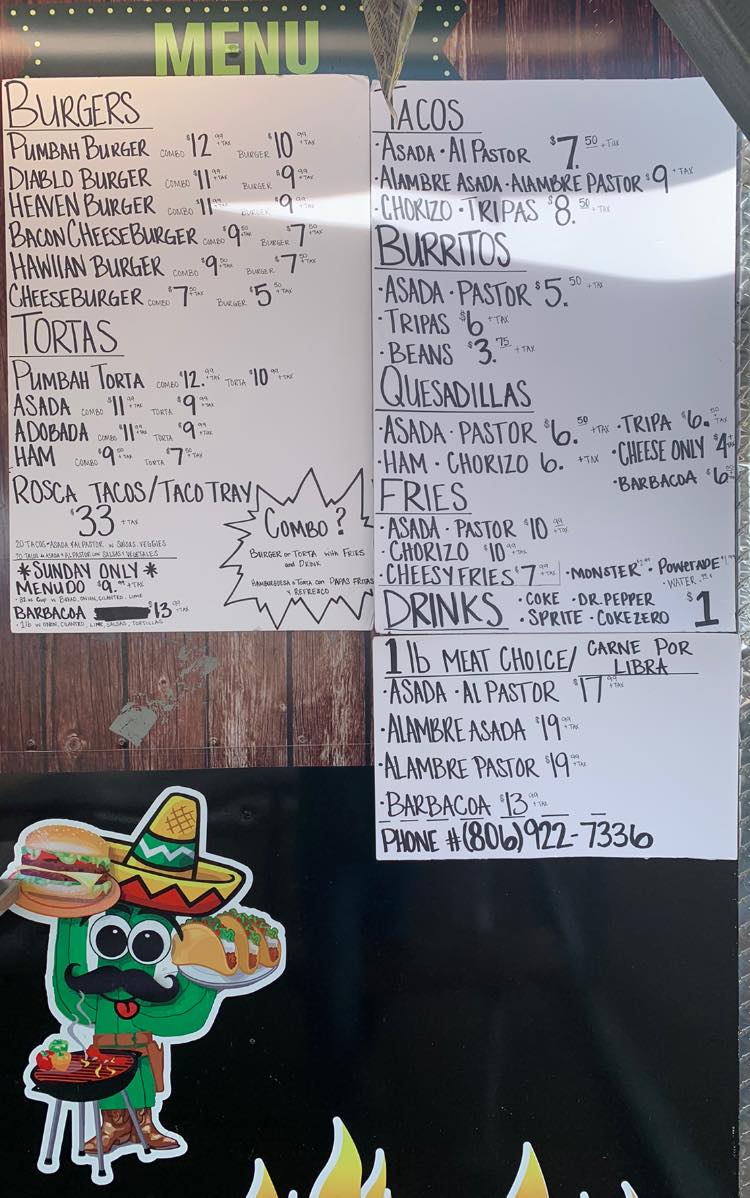 MENU
BURGERS
PUMBAH BURGER COMBO $12.99 +TAX BURGER $10.99 +TAX
DIABLO BURGER COMBO $11.99 +TAX BURGER $9.99 +TAX
HEAVEN BURGER COMBO $11.99 +TAX BURGER $9.99 +TAX
BACON CHEESE BURGER COMBO $9.50 +TAX BURGER $7.50 +TAX
HAWIIAN BURGER COMBO $9.50 +TAX BURGER $7.50 +TAX
CHEESEBURGER COMBO $7.50 +TAX BURGER $5.50 +TAX
TORTAS
PUMBAH TORTA COMBO $12.99 +TAX TORTA $10.99 +TAX
ASADA COMBO $11.99 +TAX TORTA $9.99 +TAX
ADOBADA COMBO $11.99 +TAX TORTA $9.99 +TAX
HAM COMBO $9.99 +TAX TORTA $7.99 +TAX
ROSCA TACOS/TACO TRAY
$33 +TAX
20 TACOS • ASADA & AL PASTOR W SALSAS, VEGGIES
20 TACOS DE ASADA • AL PASTOR CON SALSAS Y VEGETALES
*SUNDAY ONLY*
MENUDO $9.99 +TAX
• 32 oz CUP W BREAD, ONION, CILANTRO, LIME
BARBACOA $13.99 +TAX
• 1 lb W ONION, CILANTRO, LIME, SALSAS, TORTILLAS
COMBO?
BURGER or TORTA with FRIES
and DRINK
HAMBURGUESA o TORTA con PAPAS FRITAS
Y REFRESCO
TACOS
• ASADA • AL PASTOR $7.50 +TAX
• ALAMBRE ASADA • ALAMBRE PASTOR $9 +TAX
• CHORIZO • TRIPAS $8.50 +TAX
BURRITOS
• ASADA • PASTOR $5.50 +TAX
• TRIPAS $6 +TAX
• BEANS $3.75 +TAX
QUESADILLAS
• ASADA • PASTOR $6.50 +TAX
• HAM • CHORIZO 6. +TAX
• TRIPA $6.50 +TAX
• CHEESE ONLY $4 +TAX
• BARBACOA $6.50 +TAX
FRIES
• ASADA • PASTOR $10.99 +TAX
• CHORIZO $10.99 +TAX
• CHEESY FRIES $7.99 +TAX
• MONSTER • POWERADE
• WATER
DRINKS • COKE • DR. PEPPER
• SPRITE • COKE ZERO $1
1 lb MEAT CHOICE/ CARNE POR
LIBRA
• ASADA • AL PASTOR $17.99 +TAX
• ALAMBRE ASADA $19.99 +TAX
• ALAMBRE PASTOR $19.99 +TAX
• BARBACOA $13.99 +TAX
PHONE #(806)922-7336